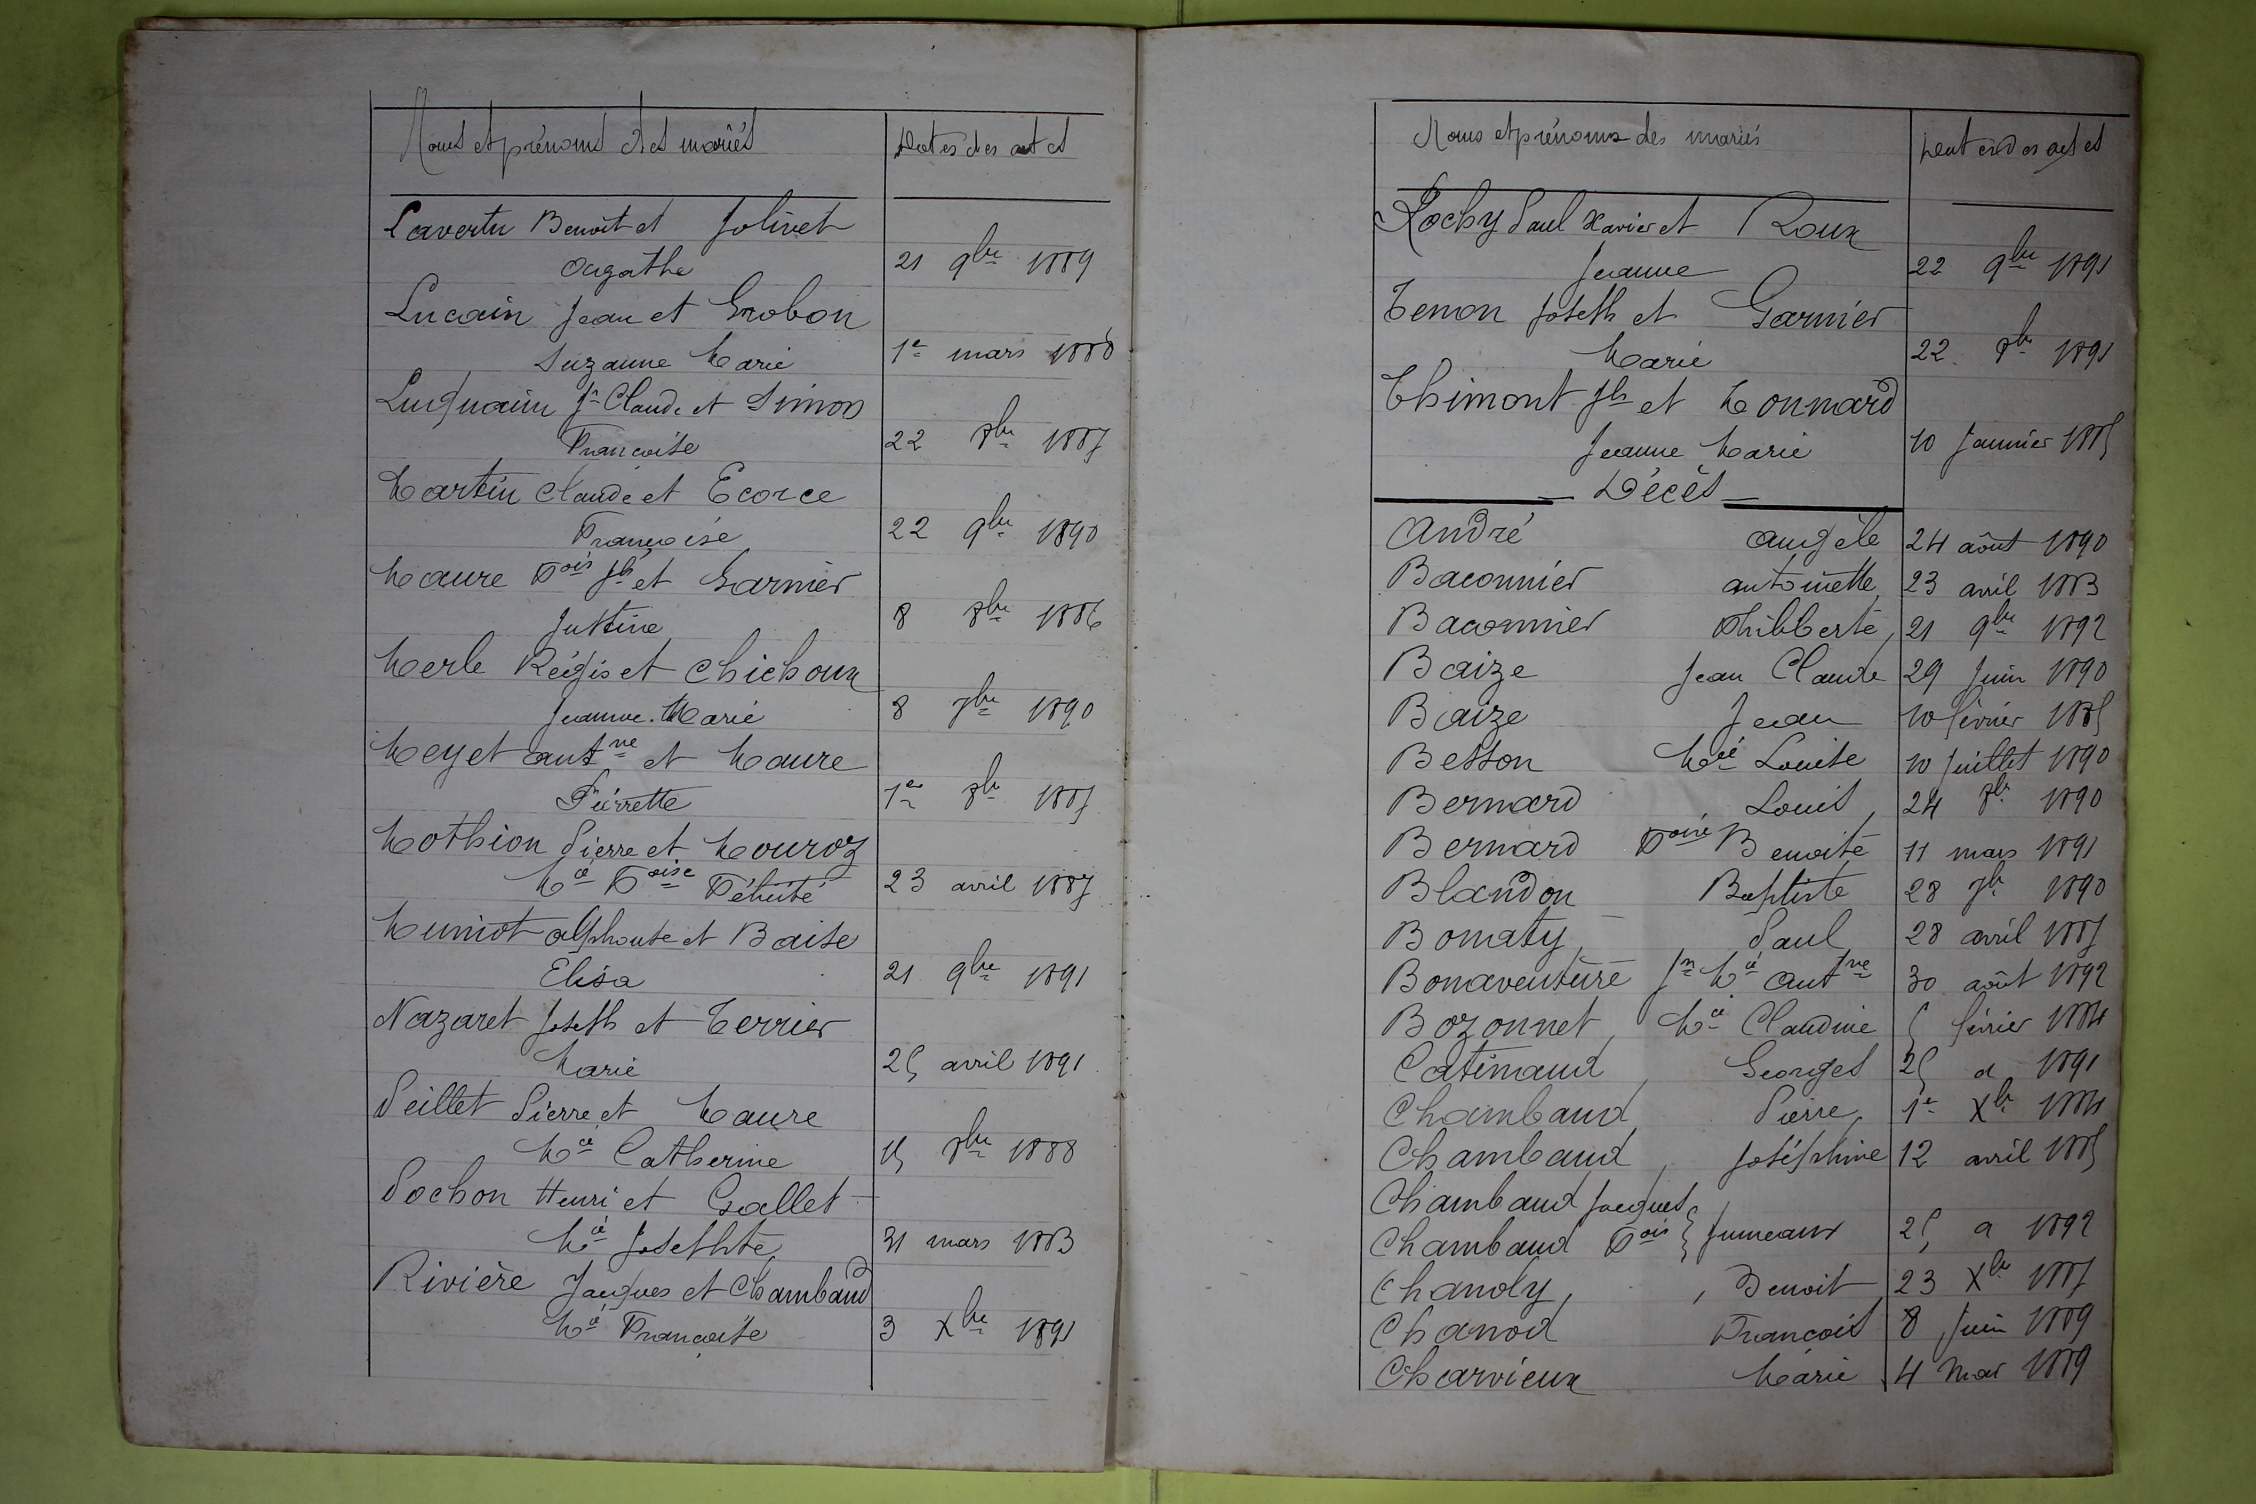 Noms et prénoms des mariés
Dates des actes
Lavertu Benoît et Jolivet
Agathe 21 9bre 1889
Lucain Jean et Grobon
Suzanne Marie 1er mars 1888
Luquain Jn Claude et Simon
Françoise 22 8bre 1887
Martin Claude et Ecorce
Françoise 22 9bre 1890
Maure Fois Jh et Garnier
Justine 8 8bre 1886
Merle Régis et Chichoux
Jeanne Marie 8 7bre 1890
Meyet Antne et Maure
Pierrette 1er 8bre 1887
Mothion Pierre et Mouroz
Mie Foise Félicité 23 avril 1887
Muniot Alphonse et Baise
Élisa 21 9bre 1891
Nazaret Joseph et Terrier
Marie 25 avril 1891
Peillet Pierre et Maure
Mie Catherine 15 8bre 1888
Pochon Henri et Gallet
Mie Josephte 31 mars 1883
Rivière Jacques et Chambaud
Mie Françoise 3 Xbre 1891
Noms et prénoms des mariés
Dates des actes
Rochy Paul Xavier et Roux
Jeanne 22 9bre 1891
Tenon Joseph et Garnier
Marie 22 8bre 1891
Thimont Jh et Monnard
Jeanne Marie 10 Janvier 1885
Décès
André Angèle 24 août 1890
Baconnier Antoinette 23 avril 1883
Baconnier Philiberte, 21 9bre 1892
Baize Jean Claude 29 Juin 1890
Baize Jean 10 février 1885
Besson Mie Louise 10 Juillet 1890
Bernard Louis, 24 8bre 1890
Bernard Foise Benoîte 11 mars 1891
Blandon Baptiste 28 7bre 1890
Bomaty, Paul 28 avril 1887
Bonaventure Jn Mie Antne 30 août 1892
Bozonnet, Mie Claudine 5 février 1884
Catimaud, Georges 25 d 1891
Chambaud Pierre, 1er Xbre 1884
Chambaud, Joséphine 12 avril 1885
Chambaud Jacques
Chambaud Fois } Jumeaux 25 a 1892
Chandy, , Benoit 23 Xbre 1887
Chanod François 8 Juin 1889
Charvieux Marie 4 Mar 1889